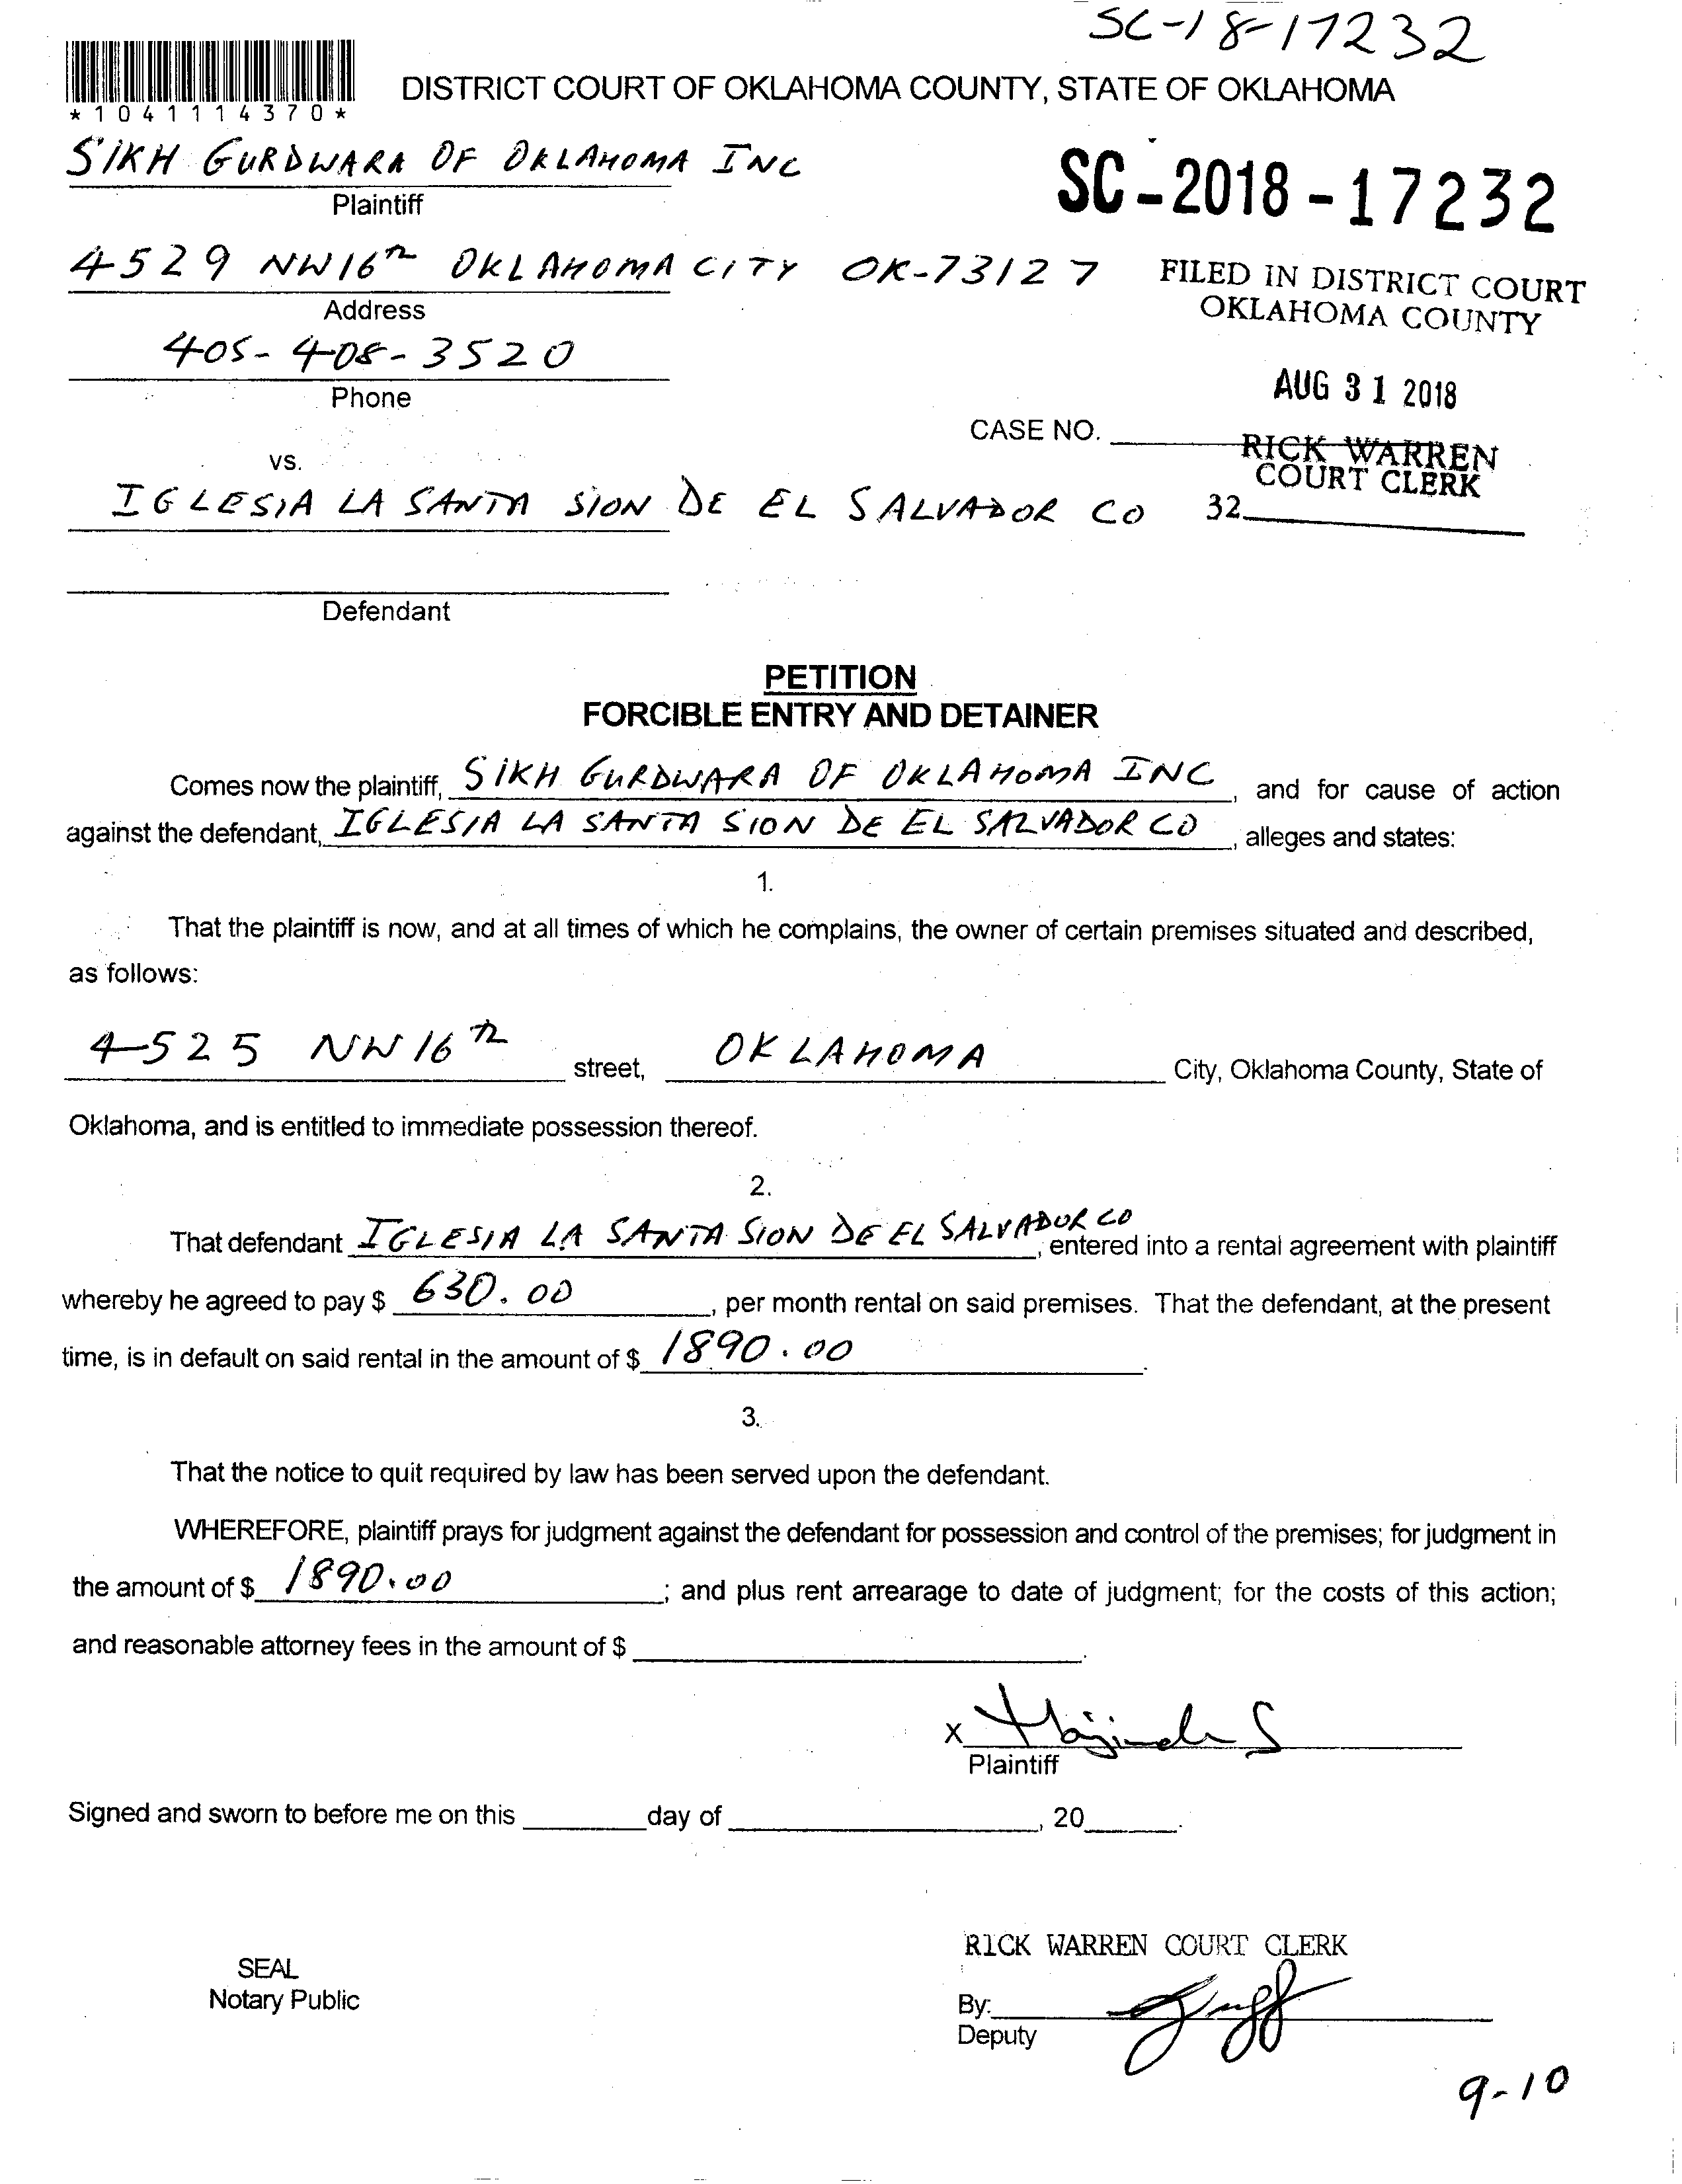 SC-18-17232
*1041114370*
DISTRICT COURT OF OKLAHOMA COUNTY, STATE OF OKLAHOMA
SIKH GURDWARA OF OKLAHOMA INC
Plaintiff
SC-2018-17232
4529 NW16th OKLAHOMA CITY OK-73127
Address
FILED IN DISTRICT COURT
OKLAHOMA COUNTY
405-408-3520
Phone
AUG 31 2018
CASE NO.
RICK WARREN
COURT CLERK
vs.
IGLESIA LA SANTA SION DE EL SALVADOR CO
32
Defendant
PETITION
FORCIBLE ENTRY AND DETAINER
Comes now the plaintiff, SIKH GURDWARA OF OKLAHOMA INC, and for cause of action
against the defendant, IGLESIA LA SANTA SION DE EL SALVADOR CO, alleges and states:
1.
That the plaintiff is now, and at all times of which he complains, the owner of certain premises situated and described,
as follows:
4525 NW16th street, OKLAHOMA City, Oklahoma County, State of
Oklahoma, and is entitled to immediate possession thereof.
2.
That defendant IGLESIA LA SANTA SION DE EL SALVADOR CO, entered into a rental agreement with plaintiff
whereby he agreed to pay $ 630.00, per month rental on said premises. That the defendant, at the present
time, is in default on said rental in the amount of $ 1890.00.
3.
That the notice to quit required by law has been served upon the defendant.
WHEREFORE, plaintiff prays for judgment against the defendant for possession and control of the premises; for judgment in
the amount of $ 1890.00; and plus rent arrearage to date of judgment; for the costs of this action;
and reasonable attorney fees in the amount of $ .
X
Plaintiff
Signed and sworn to before me on this day of , 20 .
RICK WARREN COURT CLERK
SEAL
Notary Public
By:
Deputy
9-10